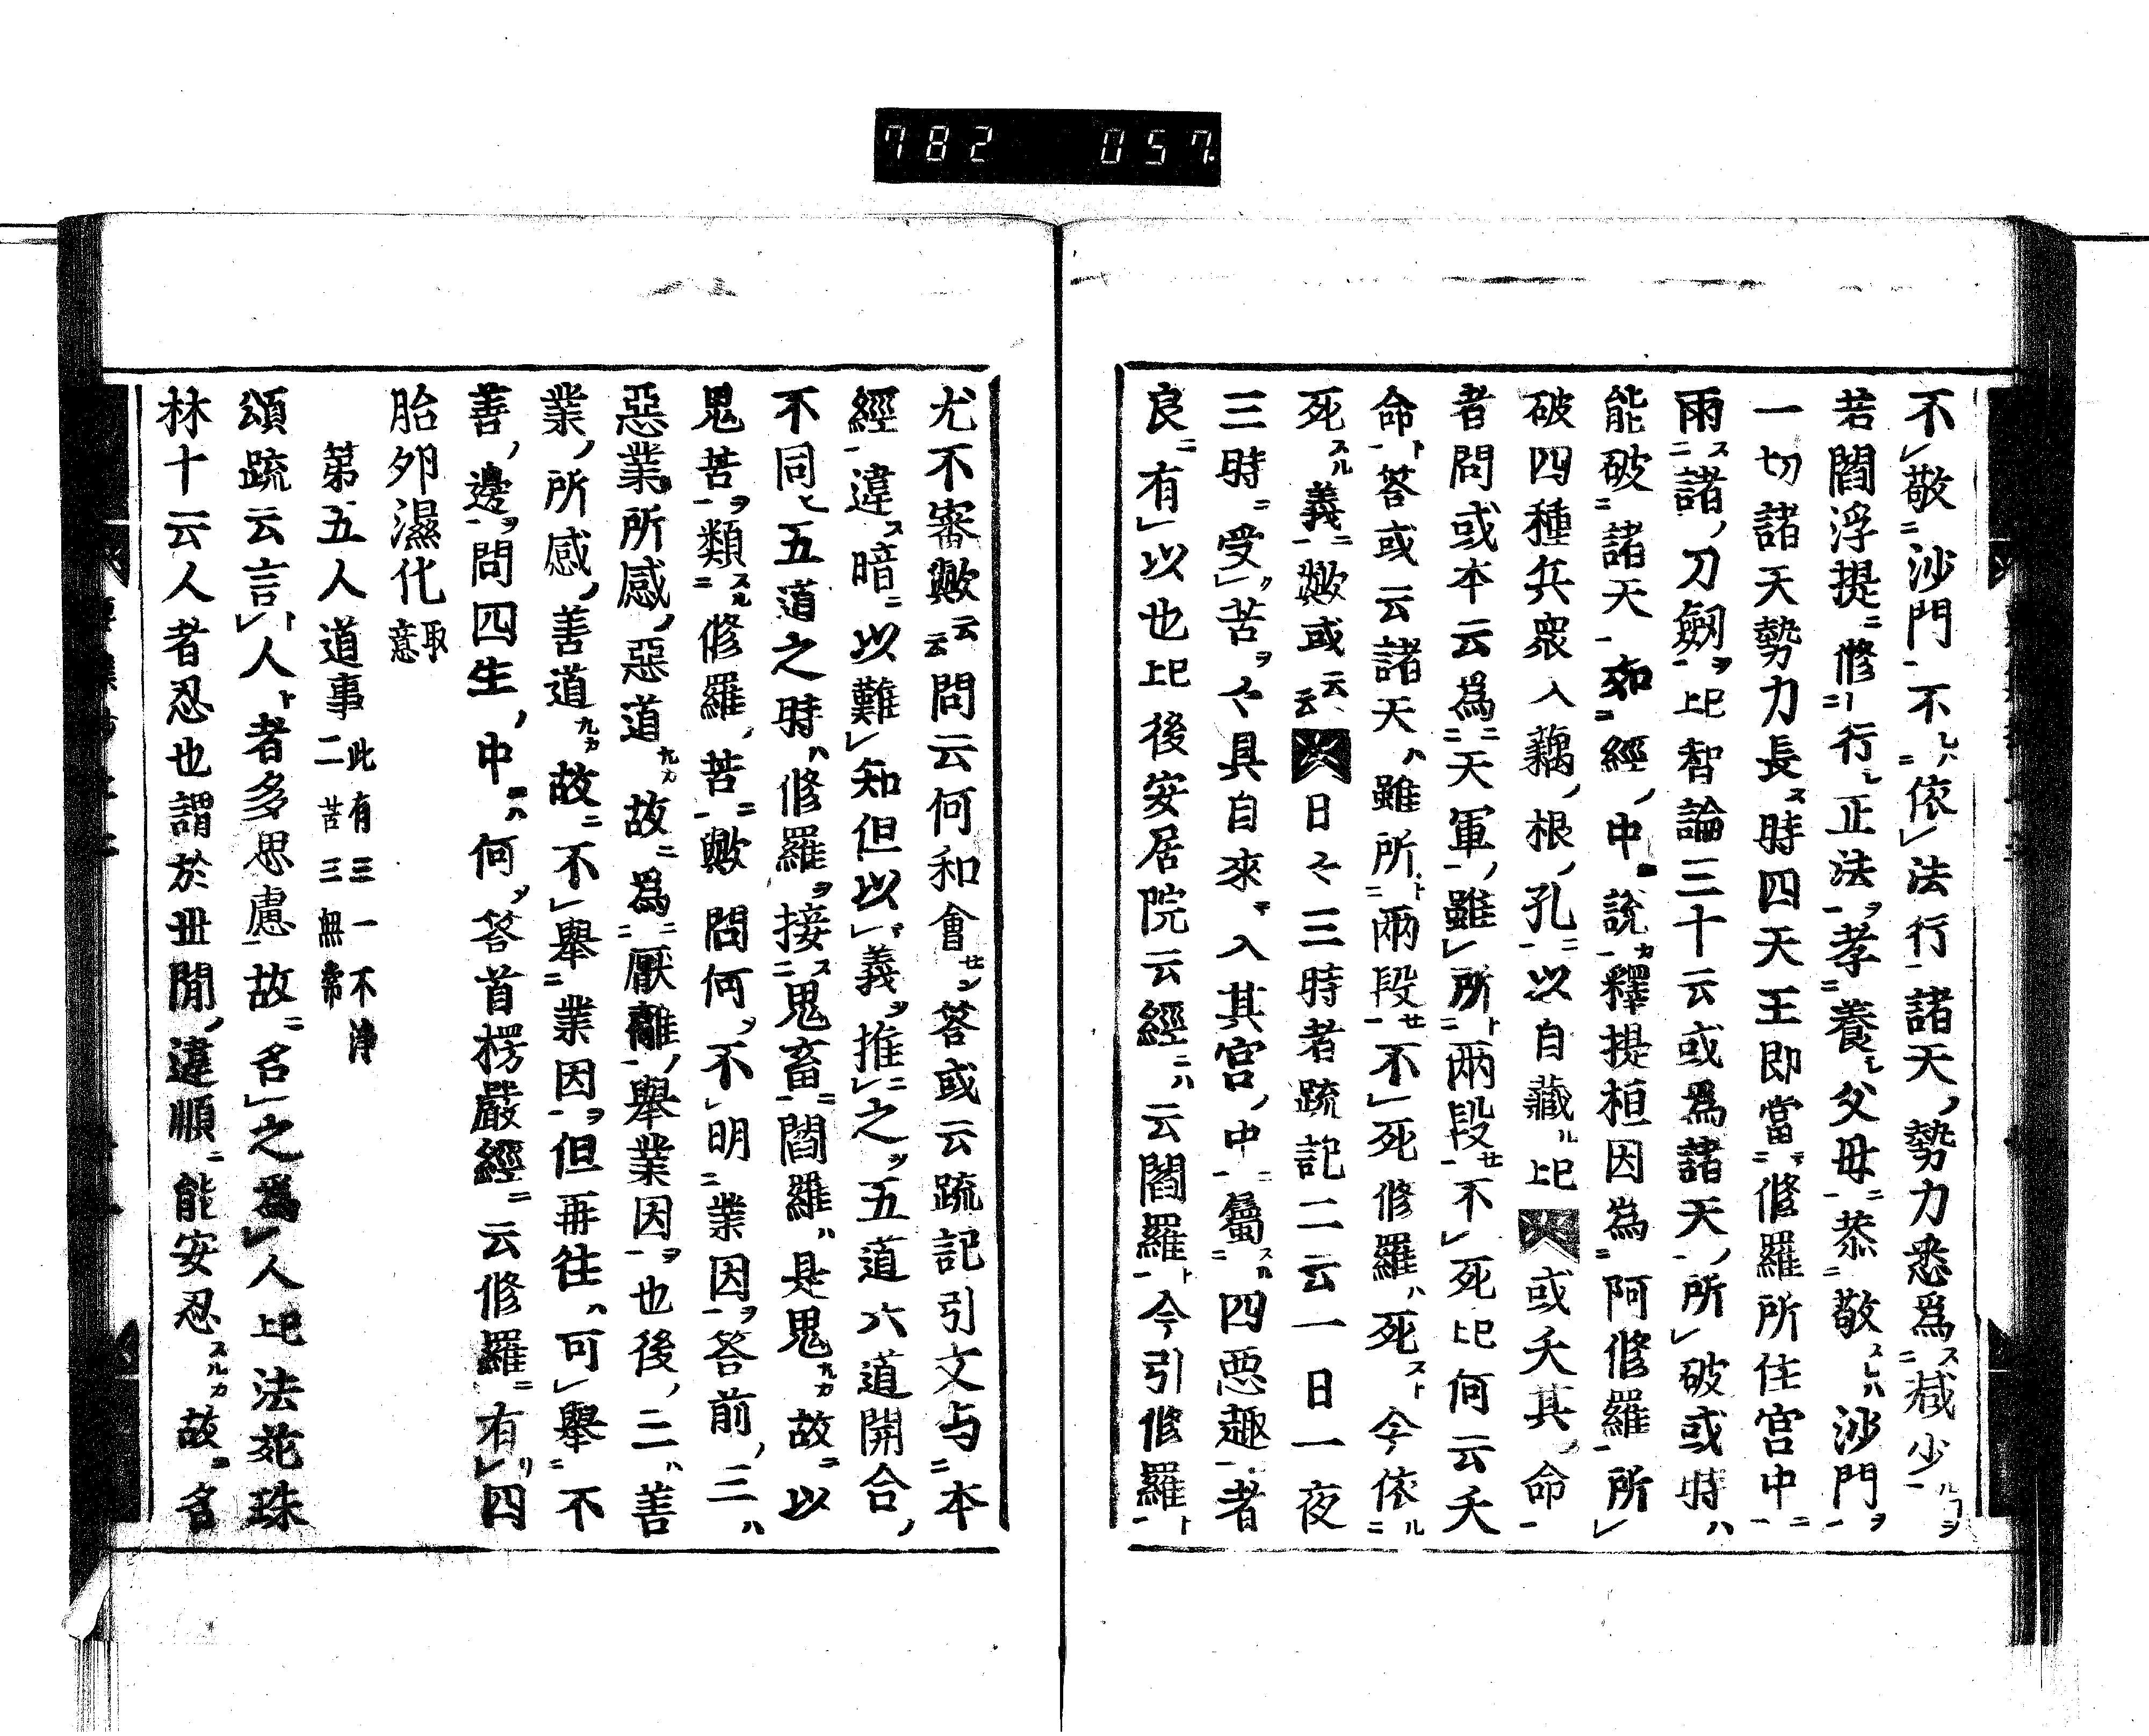 782 057
不敬沙門不依法行諸天勢力悉爲減少
若閻浮提修行正法孝養父母恭敬沙門
一切諸天勢力長時四天王即當修羅所住宮中
雨諸刀劔上巳智論三十云或爲諸天所破或時
能破諸天如經中說釋提桓因為阿修羅所
破四種兵衆入藕根孔以自藏上巳或夭其命
者問或本云爲天軍雖所兩段不死上巳何云夭
命答或云諸天雖所兩段不死修羅死今依
死義歟或云云日々三時者疏記二云一日一夜
三時受苦々具自來入其宮中屬四惡趣者
良有以也上巳後安居院云經云閻羅今引修羅
尤不審歟云云問云何和會答或云疏記引文与本
經違暗以難知但以義推之五道六道開合
不同五道之時修羅接鬼畜閻羅是鬼故以
鬼苦類修羅苦歟問何不明業因答前三
惡業所感惡道故爲厭離舉業因也後二善
業所感善道故不舉業因但再往可舉不
善邊問四生中何答首楞嚴經云修羅有四
胎夘濕化取意
第五人道事二此有三一不淨二苦三無常
頌疏云言人者多思慮故名之爲人上巳法苑珠
林十云人者忍也謂於世間違順能安忍故名